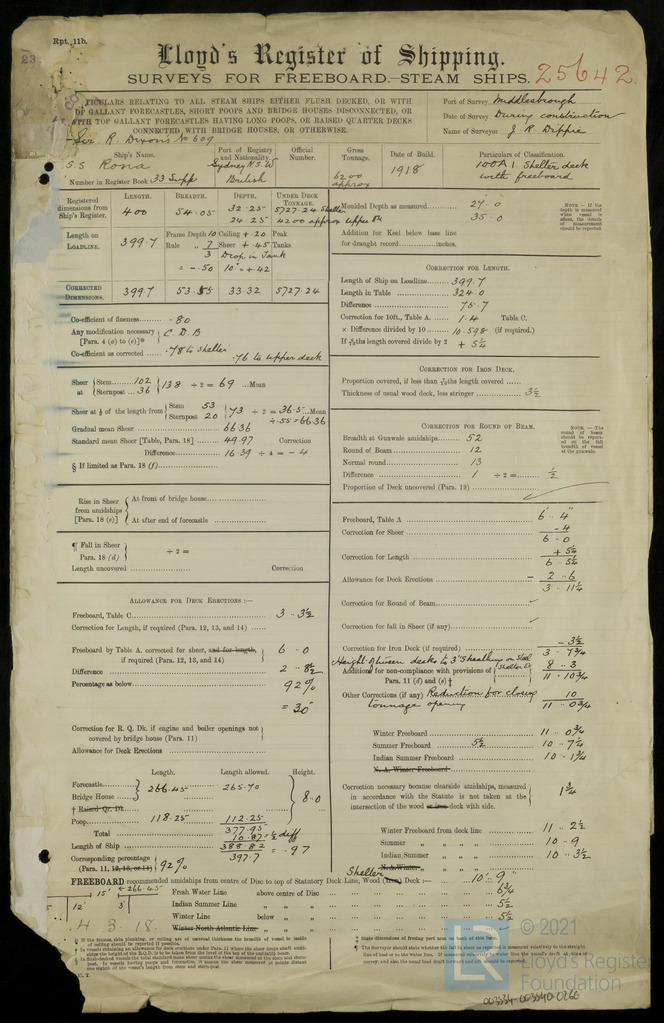 Rpt. 11b.
Lloyd's Register of Shipping.
SURVEYS FOR FREEBOARD.—STEAM SHIPS. 25642.
TICULARS RELATING TO ALL STEAM SHIPS EITHER FLUSH DECKED, OR WITH
GALLANT FORECASTLES, SHORT POOPS AND BRIDGE HOUSES DISCONNECTED, OR
WITH TOP GALLANT FORECASTLES HAVING LONG POOPS, OR RAISED QUARTER DECKS
CONNECTED WITH BRIDGE HOUSES, OR OTHERWISE.
Port of Survey Middlesbrough
Date of Survey During construction
Name of Surveyor J. R. Dippie
Sir R. Dixon's No 609
Ship's Name. Port of Registry and Nationality. Official Number. Gross Tonnage. Date of Build. Particulars of Classification.
S.S. Rona Sydney N.S.W. British 6200 approx 1918 100A1. Shelter deck with freeboard
Number in Register Book 33 Supp
LENGTH. BREADTH. DEPTH. UNDER DECK TONNAGE.
Registered dimensions from Ship's Register. 400 54.05 32.25 5727.24 Shelter
24.25 4200 approx upper dk
Length on LOADLINE. 399.7 Frame Depth 10 Ceiling +.20 Peak
Rule " 7 Sheer +.45 Tanks
3 Drop in Tank
= -.50 10" = +.42
CORRECTED DIMENSIONS. 399.7 53.55 33.32 5727.24
Moulded Depth as measured 27.0
35.0
Addition for Keel below base line
for draught record inches.
NOTE.—If the depth is measured when vessel is afloat, the details of measurement should be reported.
Co-efficient of fineness .80
Any modification necessary [Para. 4 (a) to (e)]* C D B
Co-efficient as corrected .78 to shelter .76 to upper deck
CORRECTION FOR LENGTH.
Length of Ship on Loadline 399.7
Length in Table 324.0
Difference 75.7
Correction for 10ft., Table A. 1.4 Table C.
× Difference divided by 10 10.598 (if required.)
If 6/10ths length covered divide by 2 + 5¼
Sheer at Stem 102 Sternpost 36 138 ÷ 2 = 69 Mean
Sheer at ⅛ of the length from Stem 53 Sternpost 20 73 ÷ 2 = 36.5 Mean
÷ .55 = 66.36
Gradual mean Sheer 66.36
Standard mean Sheer [Table, Para. 18] 49.97 Correction
Difference 16.39 ÷ 4 = - 4
§ If limited as Para. 18 (f)
CORRECTION FOR IRON DECK.
Proportion covered, if less than 7/10ths length covered
Thickness of usual wood deck, less stringer 3½
CORRECTION FOR ROUND OF BEAM.
Breadth at Gunwale amidships 52
Round of Beam 12
Normal round 13
Difference 1 ÷ 2 = ½
Proportion of Deck uncovered (Para. 19)
NOTE.—The round of beam should be reported on the full breadth of vessel at the gunwale.
Rise in Sheer from amidships [Para. 18 (e)]
At front of bridge house
At after end of forecastle
¶ Fall in Sheer Para. 18 (d) ÷ 2 =
Length uncovered Correction
ALLOWANCE FOR DECK ERECTIONS:—
Freeboard, Table C 3 .. 3½
Correction for Length, if required (Para. 12, 13, and 14)
Freeboard by Table A. corrected for sheer, and for length, if required (Para. 12, 13, and 14) 6 .. 0
Difference 2 .. 8½
Percentage as below 92%
= 30"
Correction for R. Q. Dk. if engine and boiler openings not covered by bridge house (Para. 11)
Allowance for Deck Erections
Length. Length allowed. Height.
Forecastle
Bridge House 266.45 265.70 8.0
† Raised Qr. Dk.
Poop 118.25 112.25
Total 377.95
10.87 = ½ diff
Length of Ship 388.82 = .97
397.7
Corresponding percentage (Para. 11, 12, 13, or 14) 92%
Freeboard, Table A 6 .. 4"
Correction for Sheer - 4
6 - 0
Correction for Length + 5¼
6 .. 5¼
Allowance for Deck Erections - 2 .. 6
3 .. 11¼
Correction for Round of Beam
Correction for fall in Sheer (if any)
Correction for Iron Deck (if required) - 3½
3 .. 7¾
Height 'tween decks to 3" sheathing on Steel Shelter Dk 8 .. 3
Additions for non-compliance with provisions of Para. 11 (d) and (e) † 11 .. 10¾
Other Corrections (if any) Reduction for closing tonnage opening 10
11 .. 0¾
Winter Freeboard 11 .. 0¾
Summer Freeboard 5½ 10 .. 7¼
Indian Summer Freeboard 10 .. 1¾
N. A. Winter Freeboard
Correction necessary because clearside amidships, measured in accordance with the Statute is not taken at the intersection of the wood or iron deck with side. 1¾
Winter Freeboard from deck line 11 .. 2½
Summer " " " 10 .. 9
Indian Summer " " " 10 .. 3½
N.A. Winter " " "
FREEBOARD recommended amidships from centre of Disc to top of Statutory Deck Line, Wood (Iron) Shelter Deck:— 10' .. 9"
Fresh Water Line above centre of Disc 6¾
Indian Summer Line " " 5½
Winter Line below " 5½
Winter North Atlantic Line " "
15' 266.45
12' 3'
4 3. 18
© 2021
Lloyd's Register
Foundation
LR
003334-003340-0266